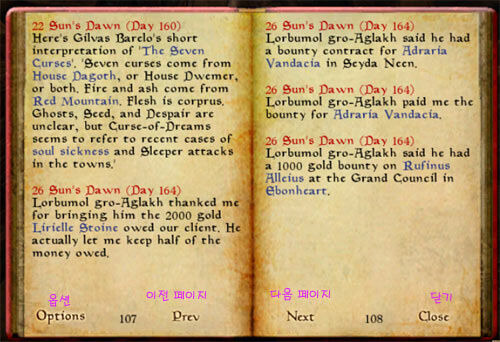 22 Sun's Dawn (Day 160)
Here's Gilvas Barelo's short
interpretation of 'The Seven
Curses'. 'Seven curses come from
House Dagoth, or House Dwemer,
or both. Fire and ash come from
Red Mountain. Flesh is corprus.
Ghosts, Seed, and Despair are
unclear, but Curse-of-Dreams
seems to refer to recent cases of
soul sickness and Sleeper attacks
in the towns.'
26 Sun's Dawn (Day 164)
Lorbumol gro-Aglakh thanked me
for bringing him the 2000 gold
Lirielle Stoine owed our client. He
actually let me keep half of the
money owed.
옵션
이전 페이지
Options
107
Prev
26 Sun's Dawn (Day 164)
Lorbumol gro-Aglakh said he had
a bounty contract for Adraria
Vandacia in Seyda Neen.
26 Sun's Dawn (Day 164)
Lorbumol gro-Aglakh paid me the
bounty for Adraria Vandacia.
26 Sun's Dawn (Day 164)
Lorbumol gro-Aglakh said he had
a 1000 gold bounty on Rufinus
Alleius at the Grand Council in
Ebonheart.
다음 페이지
닫기
Next
108
Close